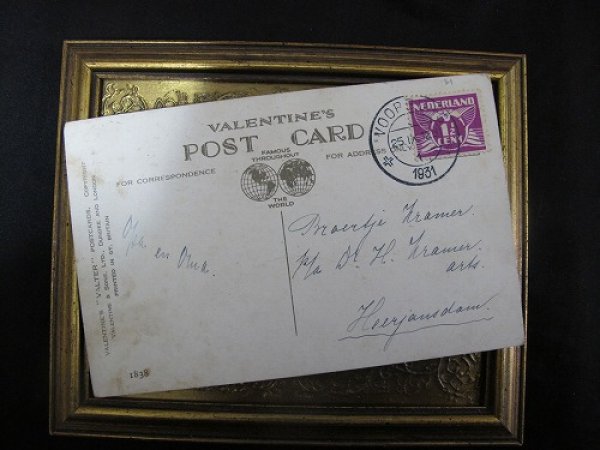 VALENTINE'S
POST CARD
FOR CORRESPONDENCE
FAMOUS
THROUGHOUT
THE
WORLD
FOR ADDRESS
NEDERLAND
1½
CENT
VOOR
25.IX
1931
Opa en Oma.
Broertje Kramer.
p/a Dr. H. Kramer.
arts.
Heerjansdam.
VALENTINE'S "VALTER" POSTCARDS, COPYRIGHT
VALENTINE & SONS, LTD., DUNDEE AND LONDON
PRINTED IN GT. BRITAIN
1838